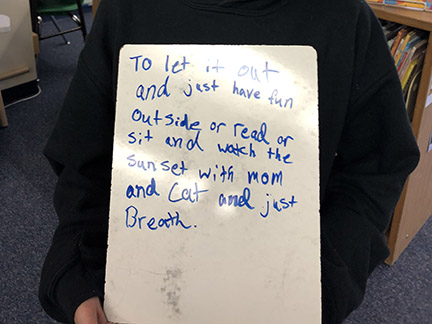 To let it out
and just have fun
outside or read or
sit and watch the
sunset with mom
and Cat and just
Breath.